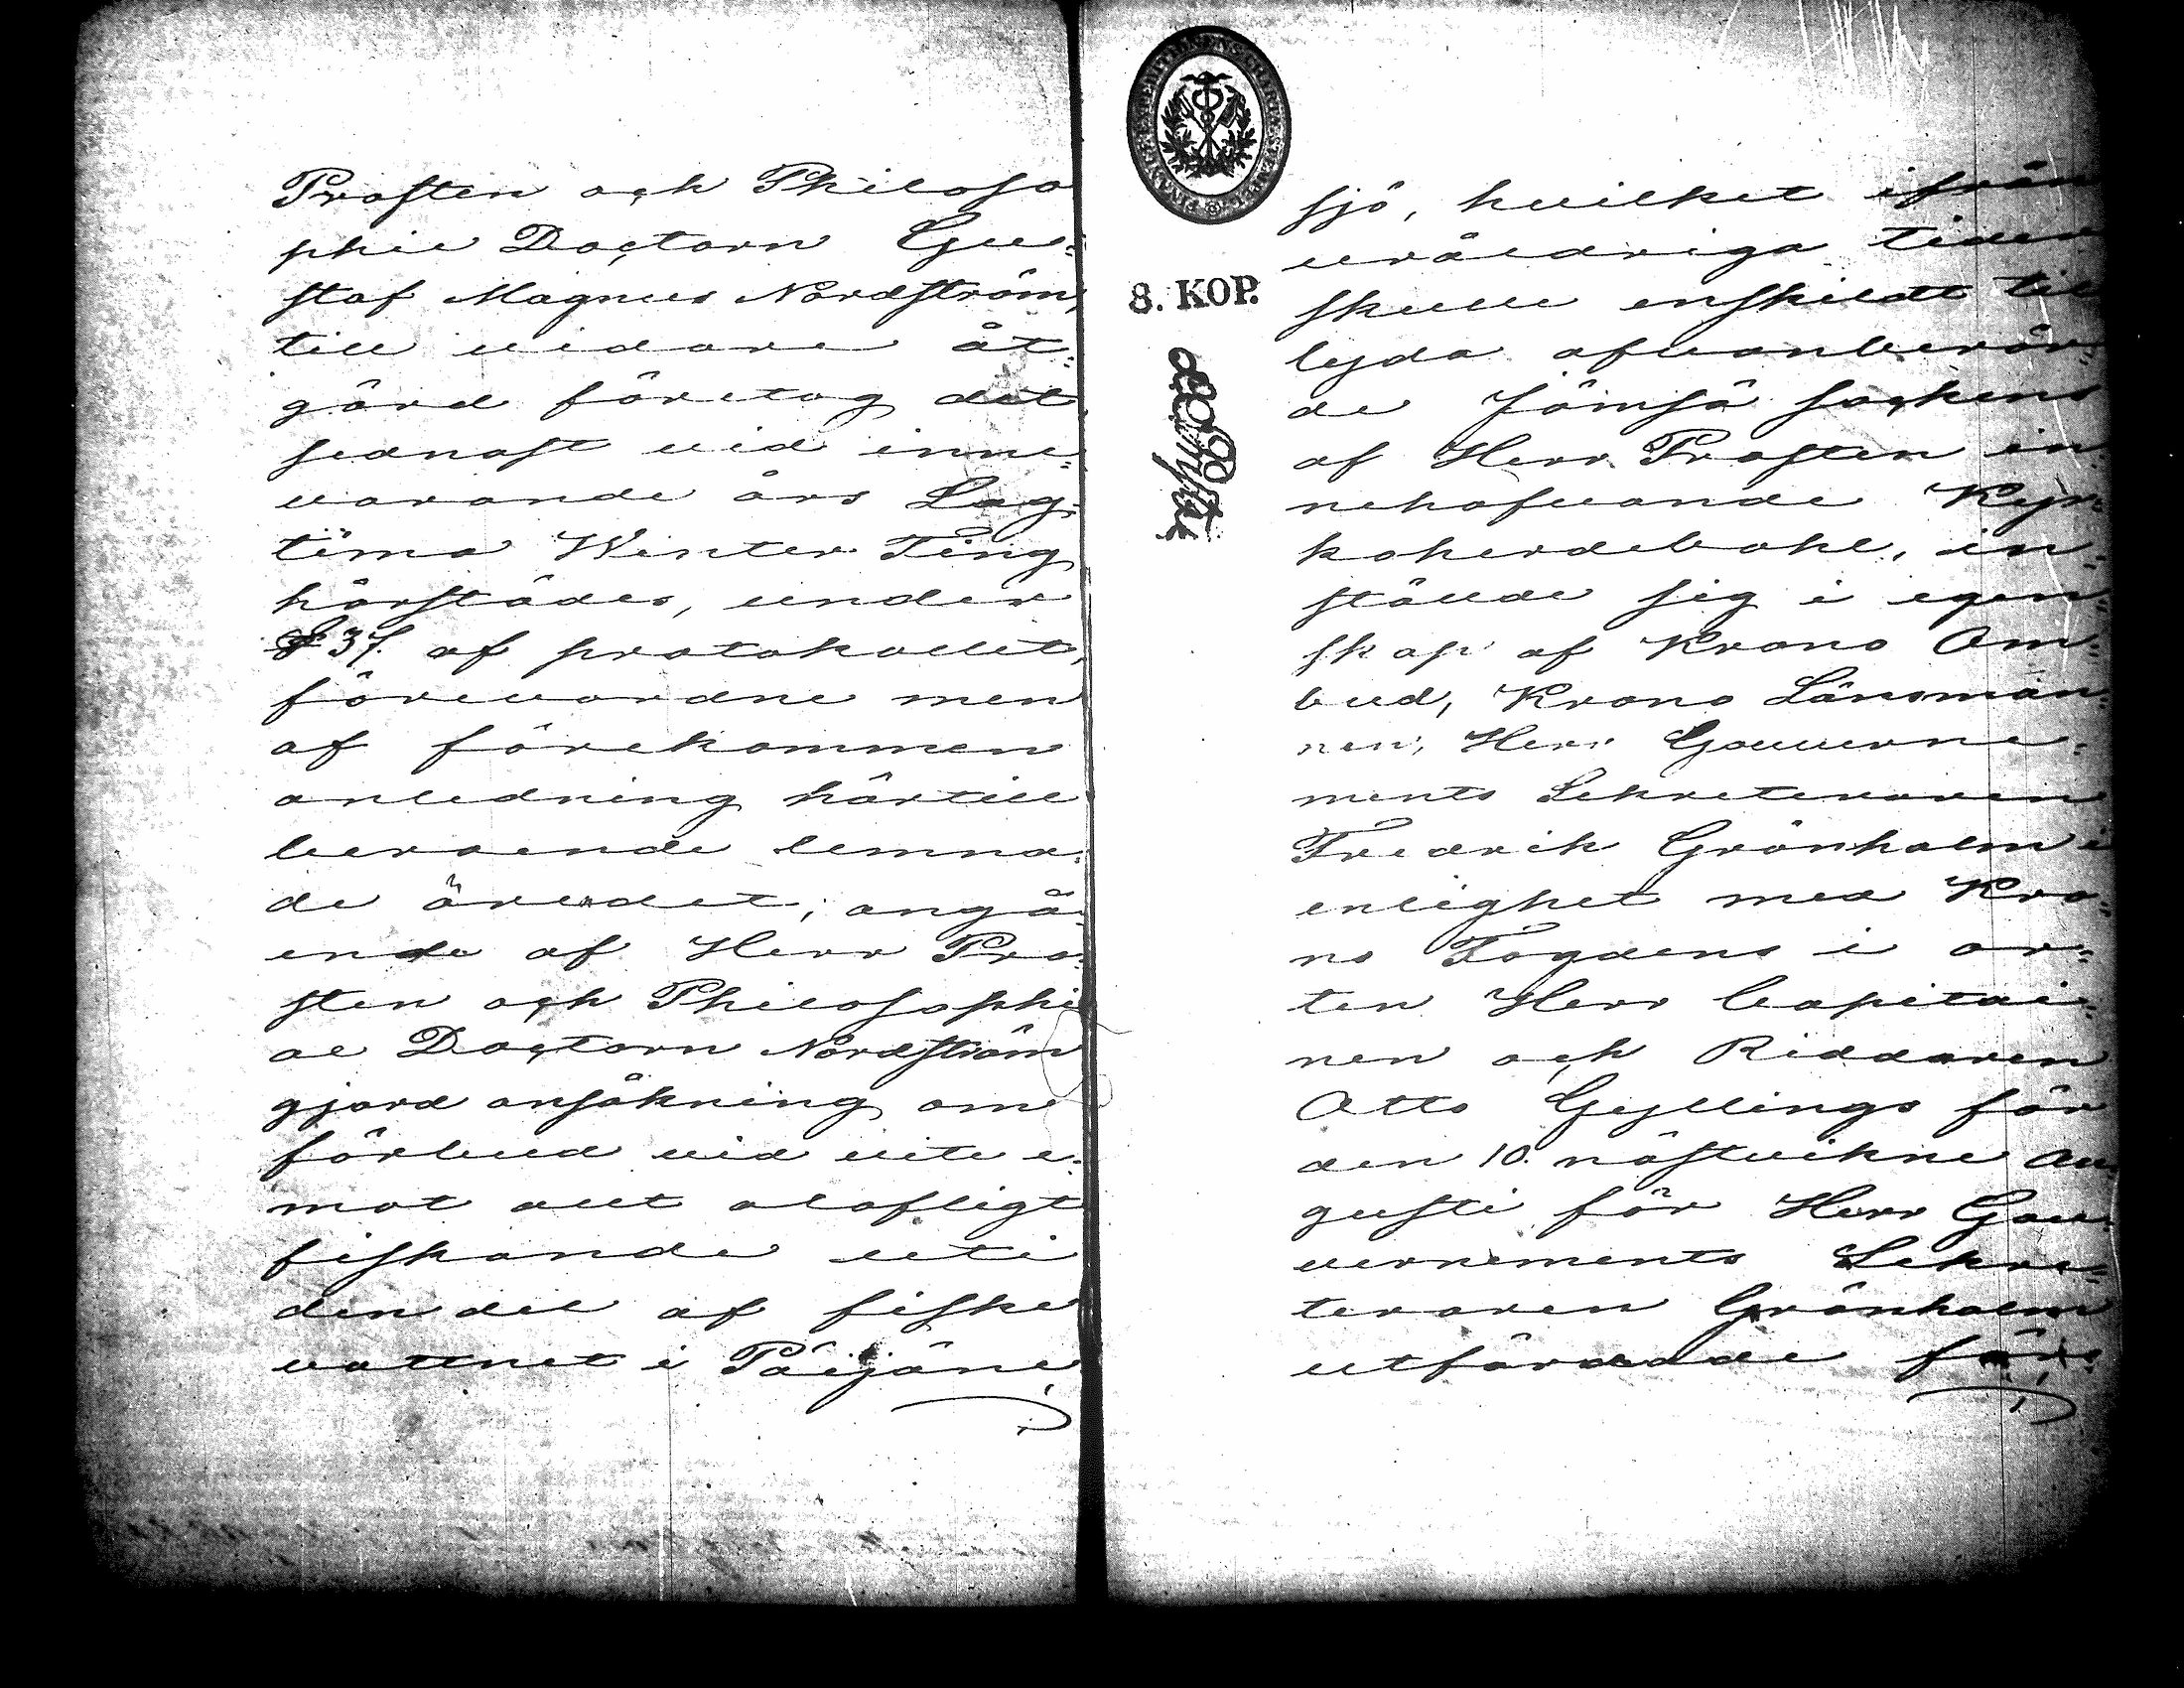 Prosten och Philoso
phie Doctorn Gu=
staf Magnus Nordström,
till vidare åt=
gärd företog det
sednast vid inne=
varande års Lag=
tima Winter Ting
härstädes, under
§ 37. af protokollet,
förevordne men
af förekommen
anledning härtill
beroende lemna=
de ärendet, angå=
ende af Herr Pro=
sten och Philosophi
ae Doctorn Nordström
gjord ansökning om
förbud vid vite e=
mot allt olofligt
fiskande uti
den del af fiske
vattnet i Päijäne
FINANCE EXPEDITIONENS CHARTÆ STEMPEL
8. KOP.
sjö, hvilket ifrån
uråldriga tider
skulle enskildt til
lyda ofvanberör=
de Jämsä sockens
af Herr Prosten in
nehafvande Kyr=
koherdebohl, in=
ställde sig i egen=
skap af Krono Om=
bud, Krono Länsman=
nen, Herr Gouverne=
ments Sekreteraren
Fredrik Grönholm i
enlighet med Kro=
no Fogdens i or=
ten Herr Capitai=
nen och Riddaren
Otto Gyllings för
den 10. nästvikne Au=
gusti för Herr Gou=
vernements Sekre=
teraren Grönholm
utfärdade före